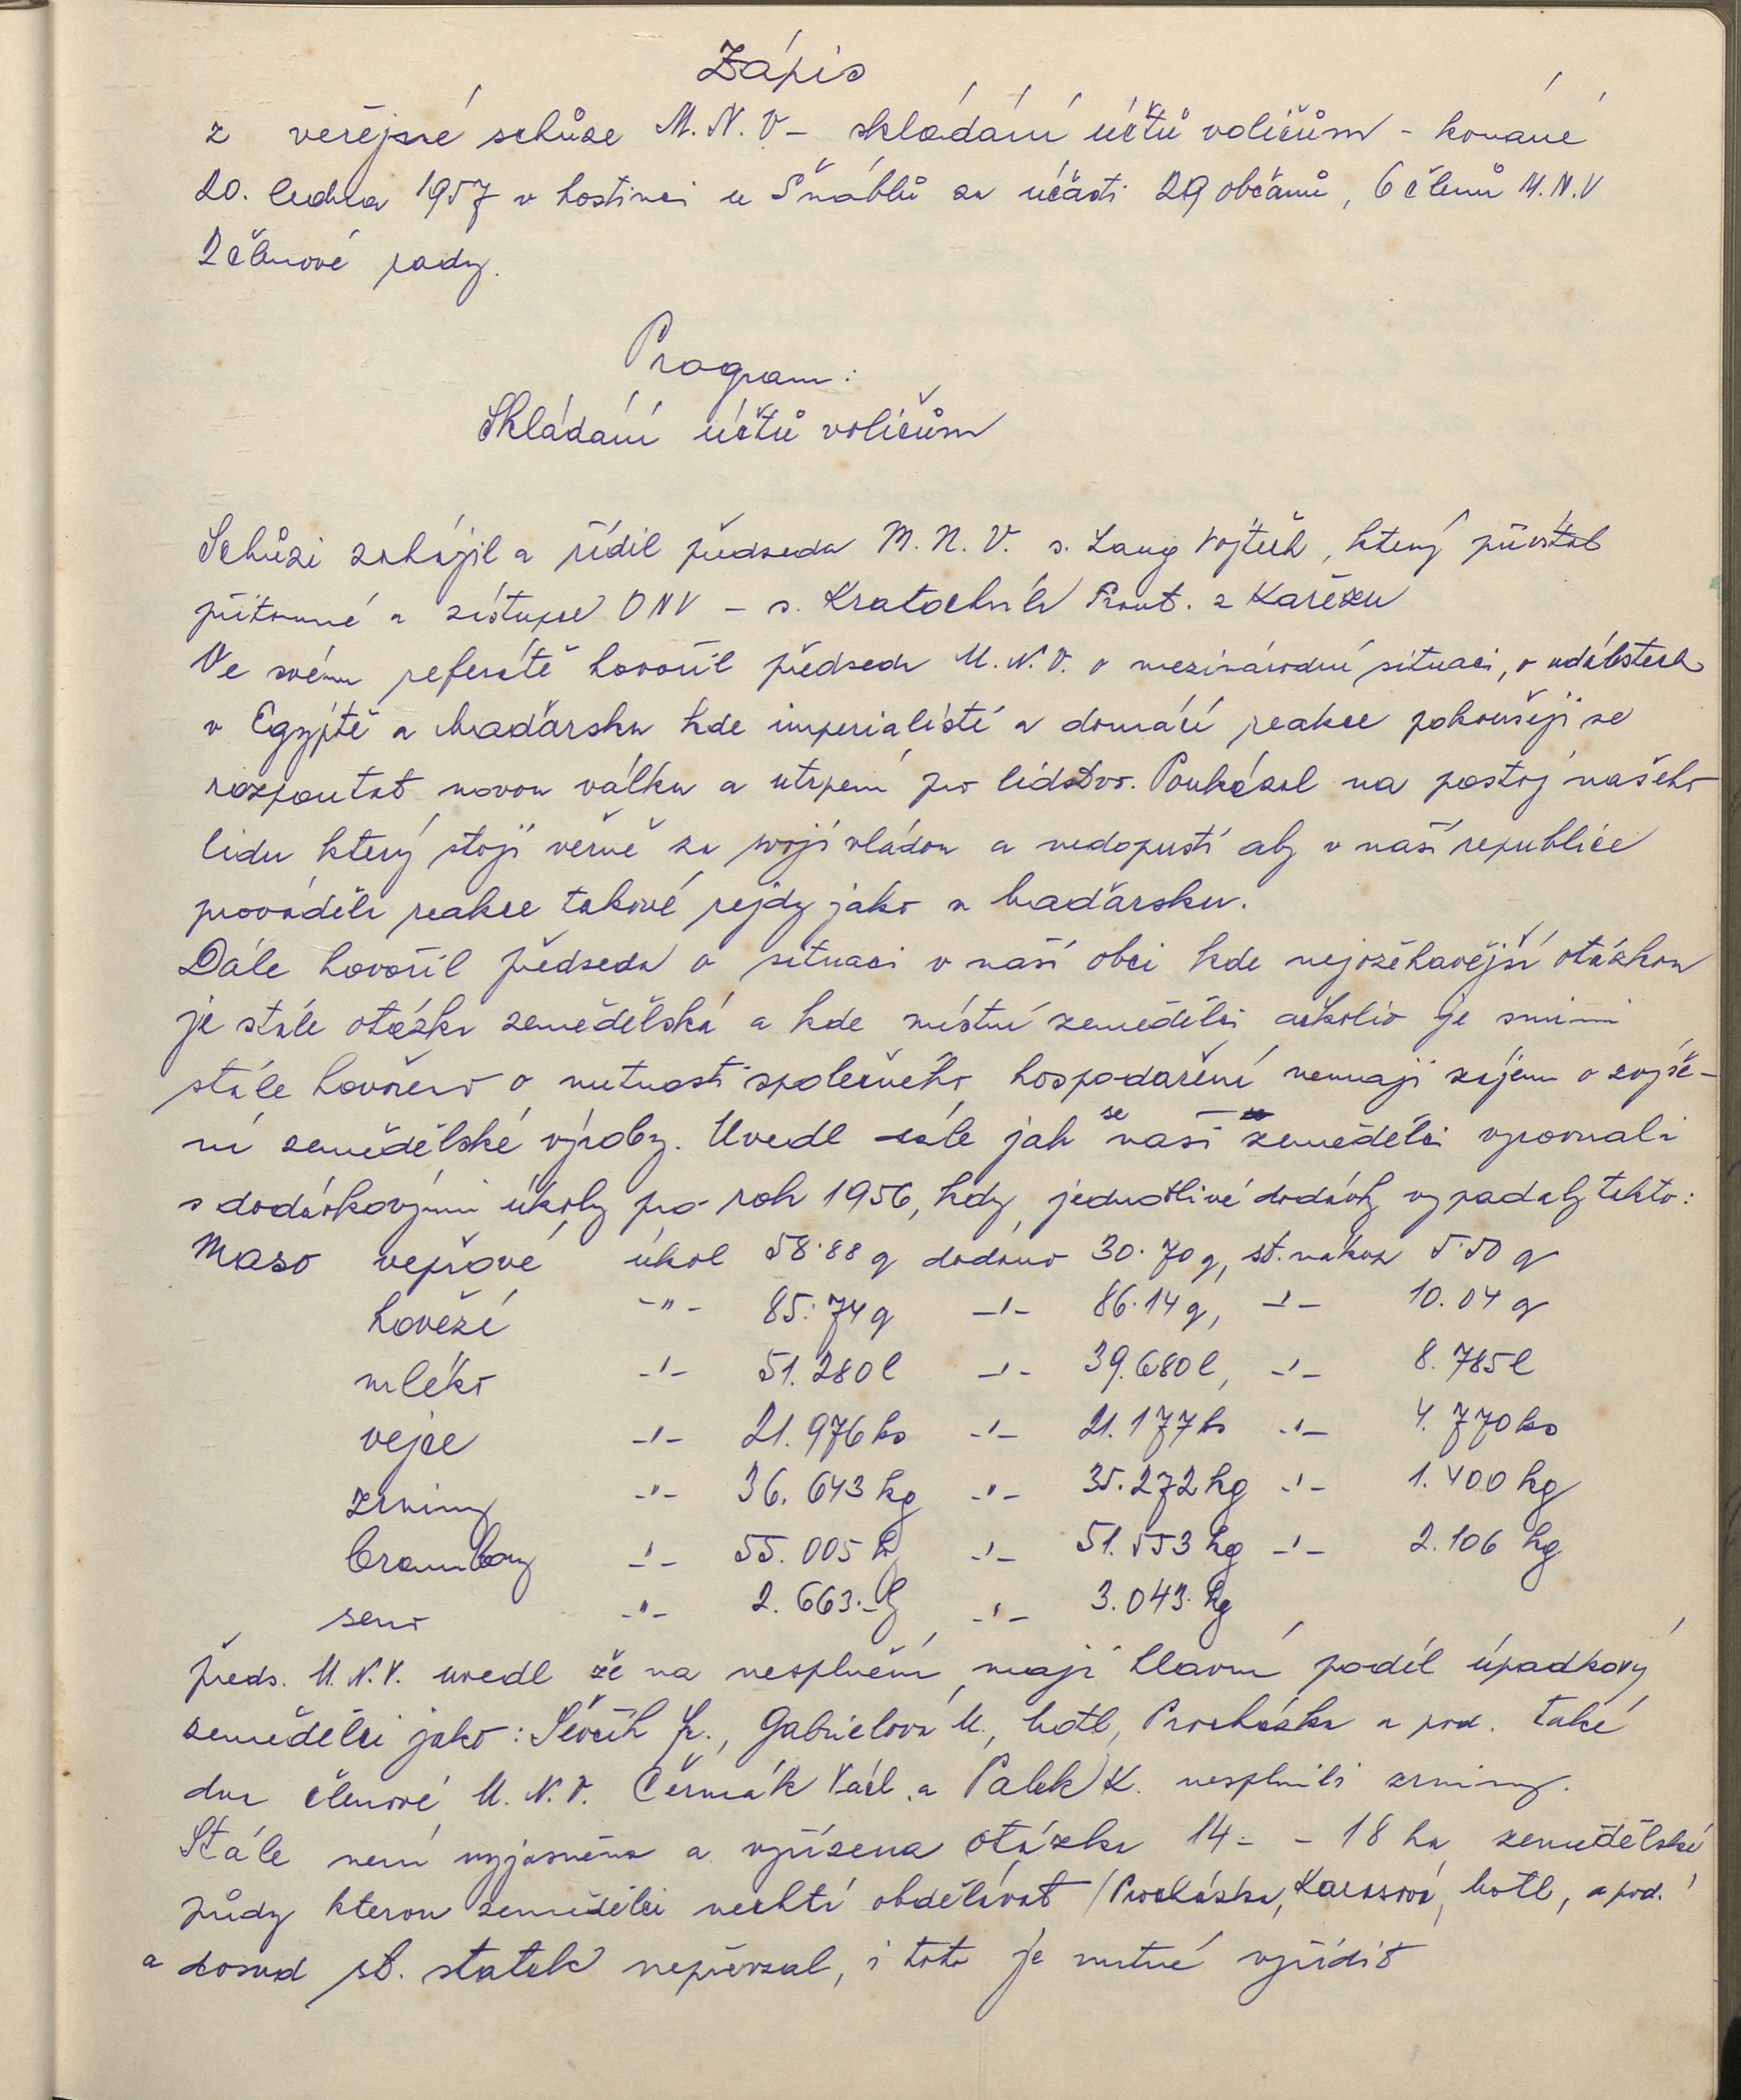 Zápis
z veřejné schůze M.N.V – skládání účtů voličům – konané
20. ledna 1957 v hostinci u Šnáblů za účasti 29 občanů, 6 členů M.N.V
2 členové rady.
Program:
Skládání účtů voličům
Schůzi zahájil a řídil předseda M.N.V. s. Lang Vojtěch, který přivítal
přítomné a zástupce ONV – s. Kratochvíla Frant. z Kařezu
Ve svém referátě hovořil předseda M.N.V. o mezinárodní situaci, o událostech
v Egyptě a maďarsku kde imperialisté a domácí reakce pokoušejí se
rozpoutat novou válku a utrpení pro lidstvo. Poukázal na postoj našeho
lidu který stojí věrně za svojí vládou a nedopustí aby v naší republice
prováděla reakce takové rejdy jako v maďarsku.
Dále hovořil předseda o situaci v naší obci kde nejožehavější otázkou
je stále otázka zemědělská a kde místní zemědělci ačkoliv je s nimi
stále hovořeno o nutnosti společného hospodaření nemají zájem o zvýše-
ní zemědělské výroby. Uvedl dále jak se naši zemědělci vyrovnali
s dodávkovými úkoly pro rok 1956, kdy jednotlivé dodávky vypadaly takto:
Maso vepřové úkol 58·88 q dodáno 30·70 q, st. nákup 5·50 q
hovězí –"– 85·74 q –"– 86·14 q, –"– 10.04 q
mléko –"– 51.280 l –"– 39.680 l, –"– 8.785 l
vejce –"– 21.976 ks –"– 21.177 ks –"– 4.770 ks
zrniny –"– 36.643 kg –"– 35.272 kg –"– 1.400 kg
brambory –"– 55.005 kg –"– 51.553 kg –"– 2.106 kg
seno –"– 2.663.– kg –"– 3.043 kg
předs. M.N.V. uvedl že na nesplnění mají hlavní podíl úpadkový
zemědělci jako: Ševčík Fr., Gabrielová M., Motl, Procházka a pod. také
dva členové M.N.V. Čermák Václ. a Palek K. nesplnili zrniny.
Stále není vyjasněna a vyřízena otázka 14 – – 18 ha zemědělské
půdy kterou zemědělci nechtí obdělávat /Procházka, Motl, a pod./
a dosud st. statek nepřevzal, i toto je nutné vyřídit